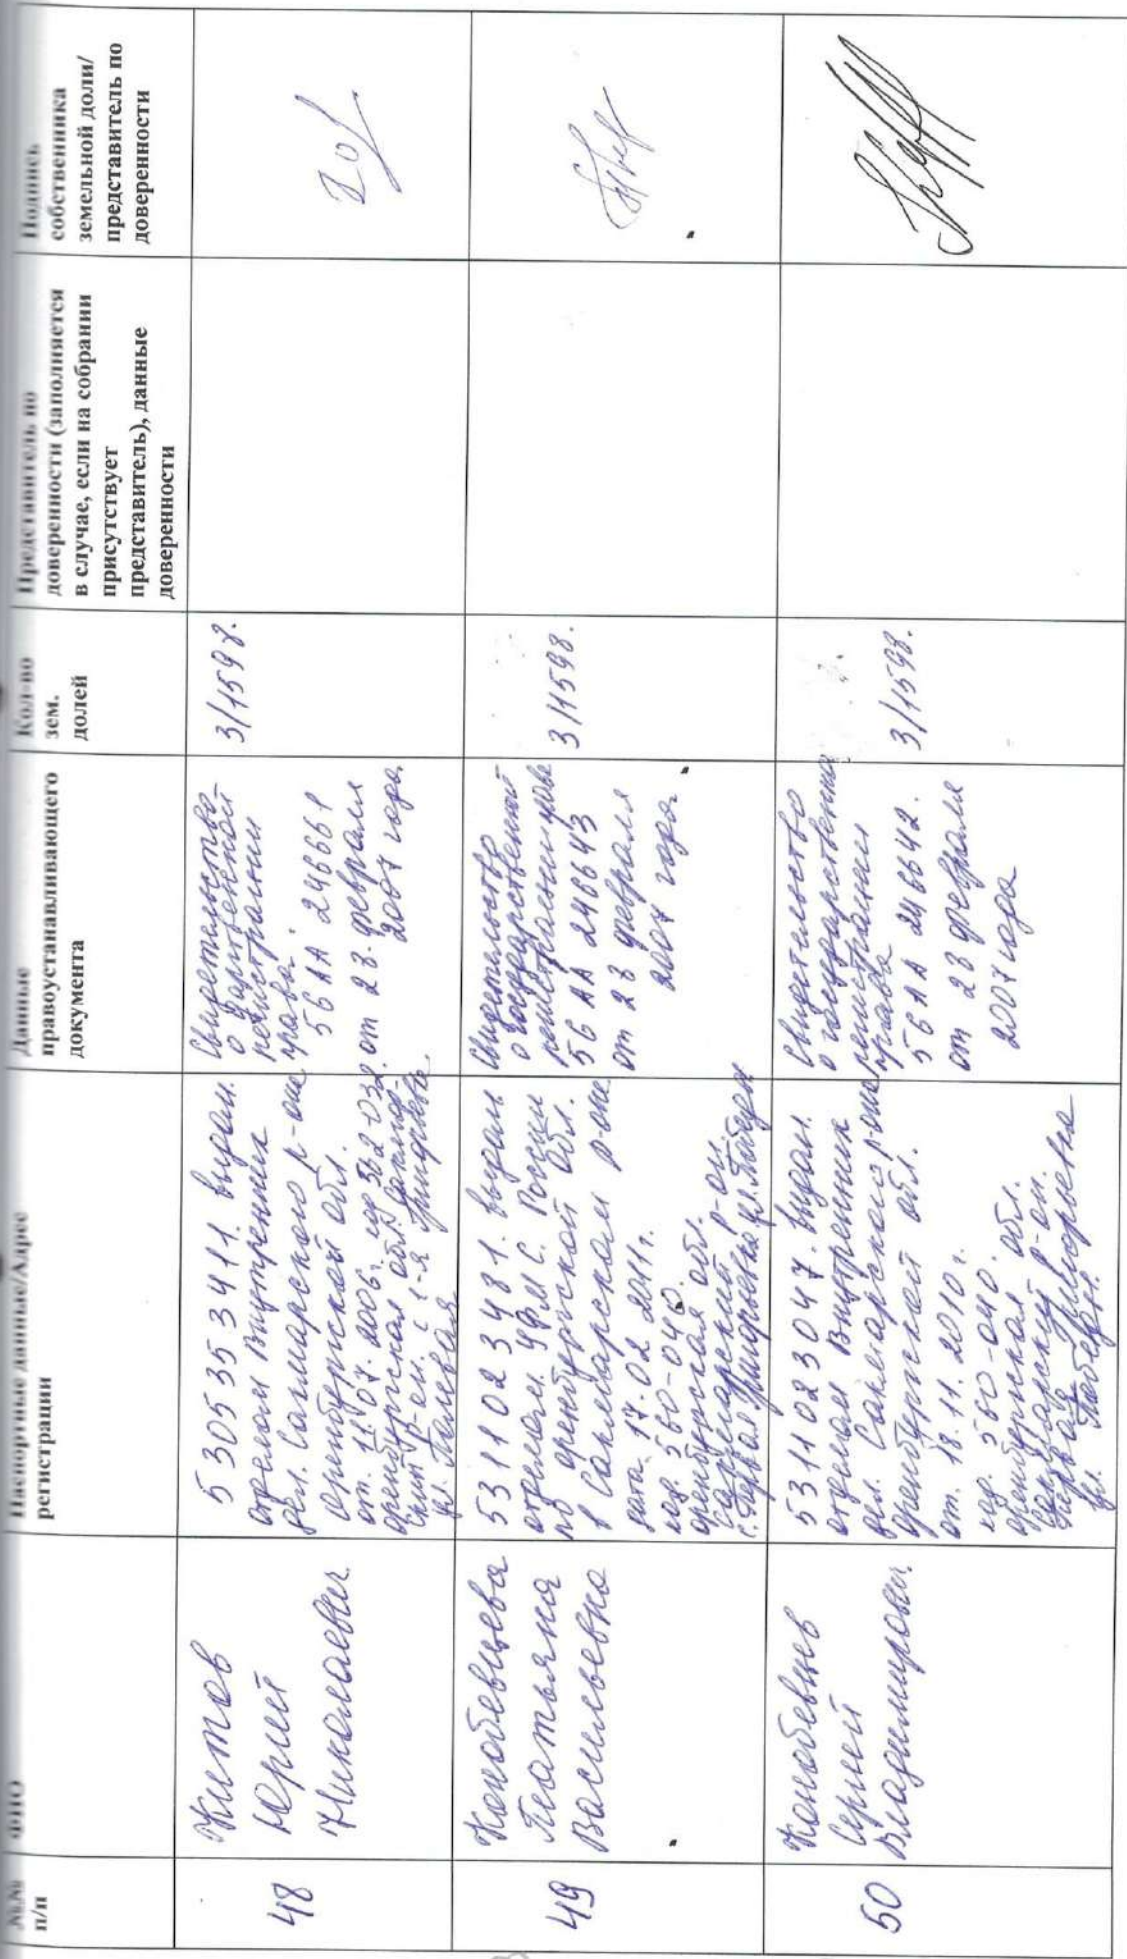 №№
п/п
ФИО
Паспортные данные/Адрес
регистрации
Данные
правоустанавливающего
документа
Кол-во
зем.
долей
Представитель по
доверенности (заполняется
в случае, если на собрании
присутствует
представитель), данные
доверенности
Подпись
собственника
земельной доли/
представитель по
доверенности
48
Китов
Юрий
Николаевич
5305353411. выдан.
отделом внутренних
дел. Сакмарского р-она
Оренбургской обл.
от. 11.07.2006г. код 562-032
Оренбургская обл. Сакмар-
ский р-он
ул. Полевая
Свидетельство
о
регистрации
права.
56 АА 246661
от 23. февраля
2007 года.
3/1598.
49
Конобевцева
Татьяна
Васильевна
5311023481. выдан
отделом УФМС. России
по Оренбургской обл.
в Сакмарском р-оне
дата. 17.02.2011г.
код. 560-040.
Оренбургская обл.
Сакмарский р-он.
с. Первая Григорьевка ул. Победы
Свидетельство
о государственной
регистрации права
56 АА 246643
от 23 февраля
2007 года.
3/1598.
50
Конобевцев
Сергей
Владимирович.
5311023047. выдан.
отделом Внутренних
дел. Сакмарского р-она
Оренбургской обл.
от. 18.11.2010г.
код. 560-040.
Оренбургская обл.
Сакмарский р-он.
Первая Григорьевка
ул. Победы.
Свидетельство
о государственной
регистрации
права
56 АА 246642.
от 23 февраля
2007 года
3/1598.